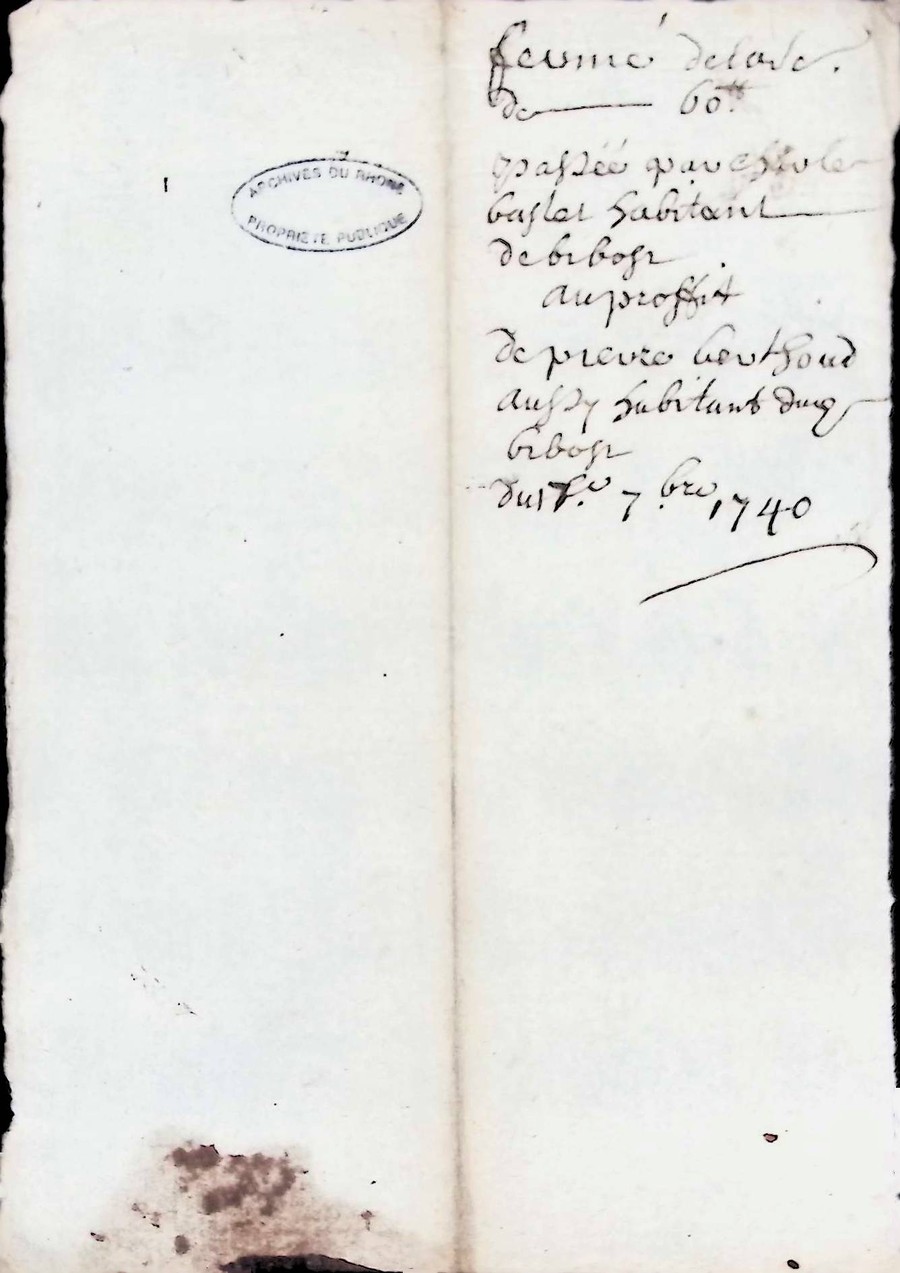 ARCHIVES DU RHONE
PROPRIÉTÉ PUBLIQUE
fermé
de 60tt
passée par Charle
baslet habitant
de bibost
au proffit
de pierre berthoud
aussy habitant dud
bibost
du 7.bre 1740